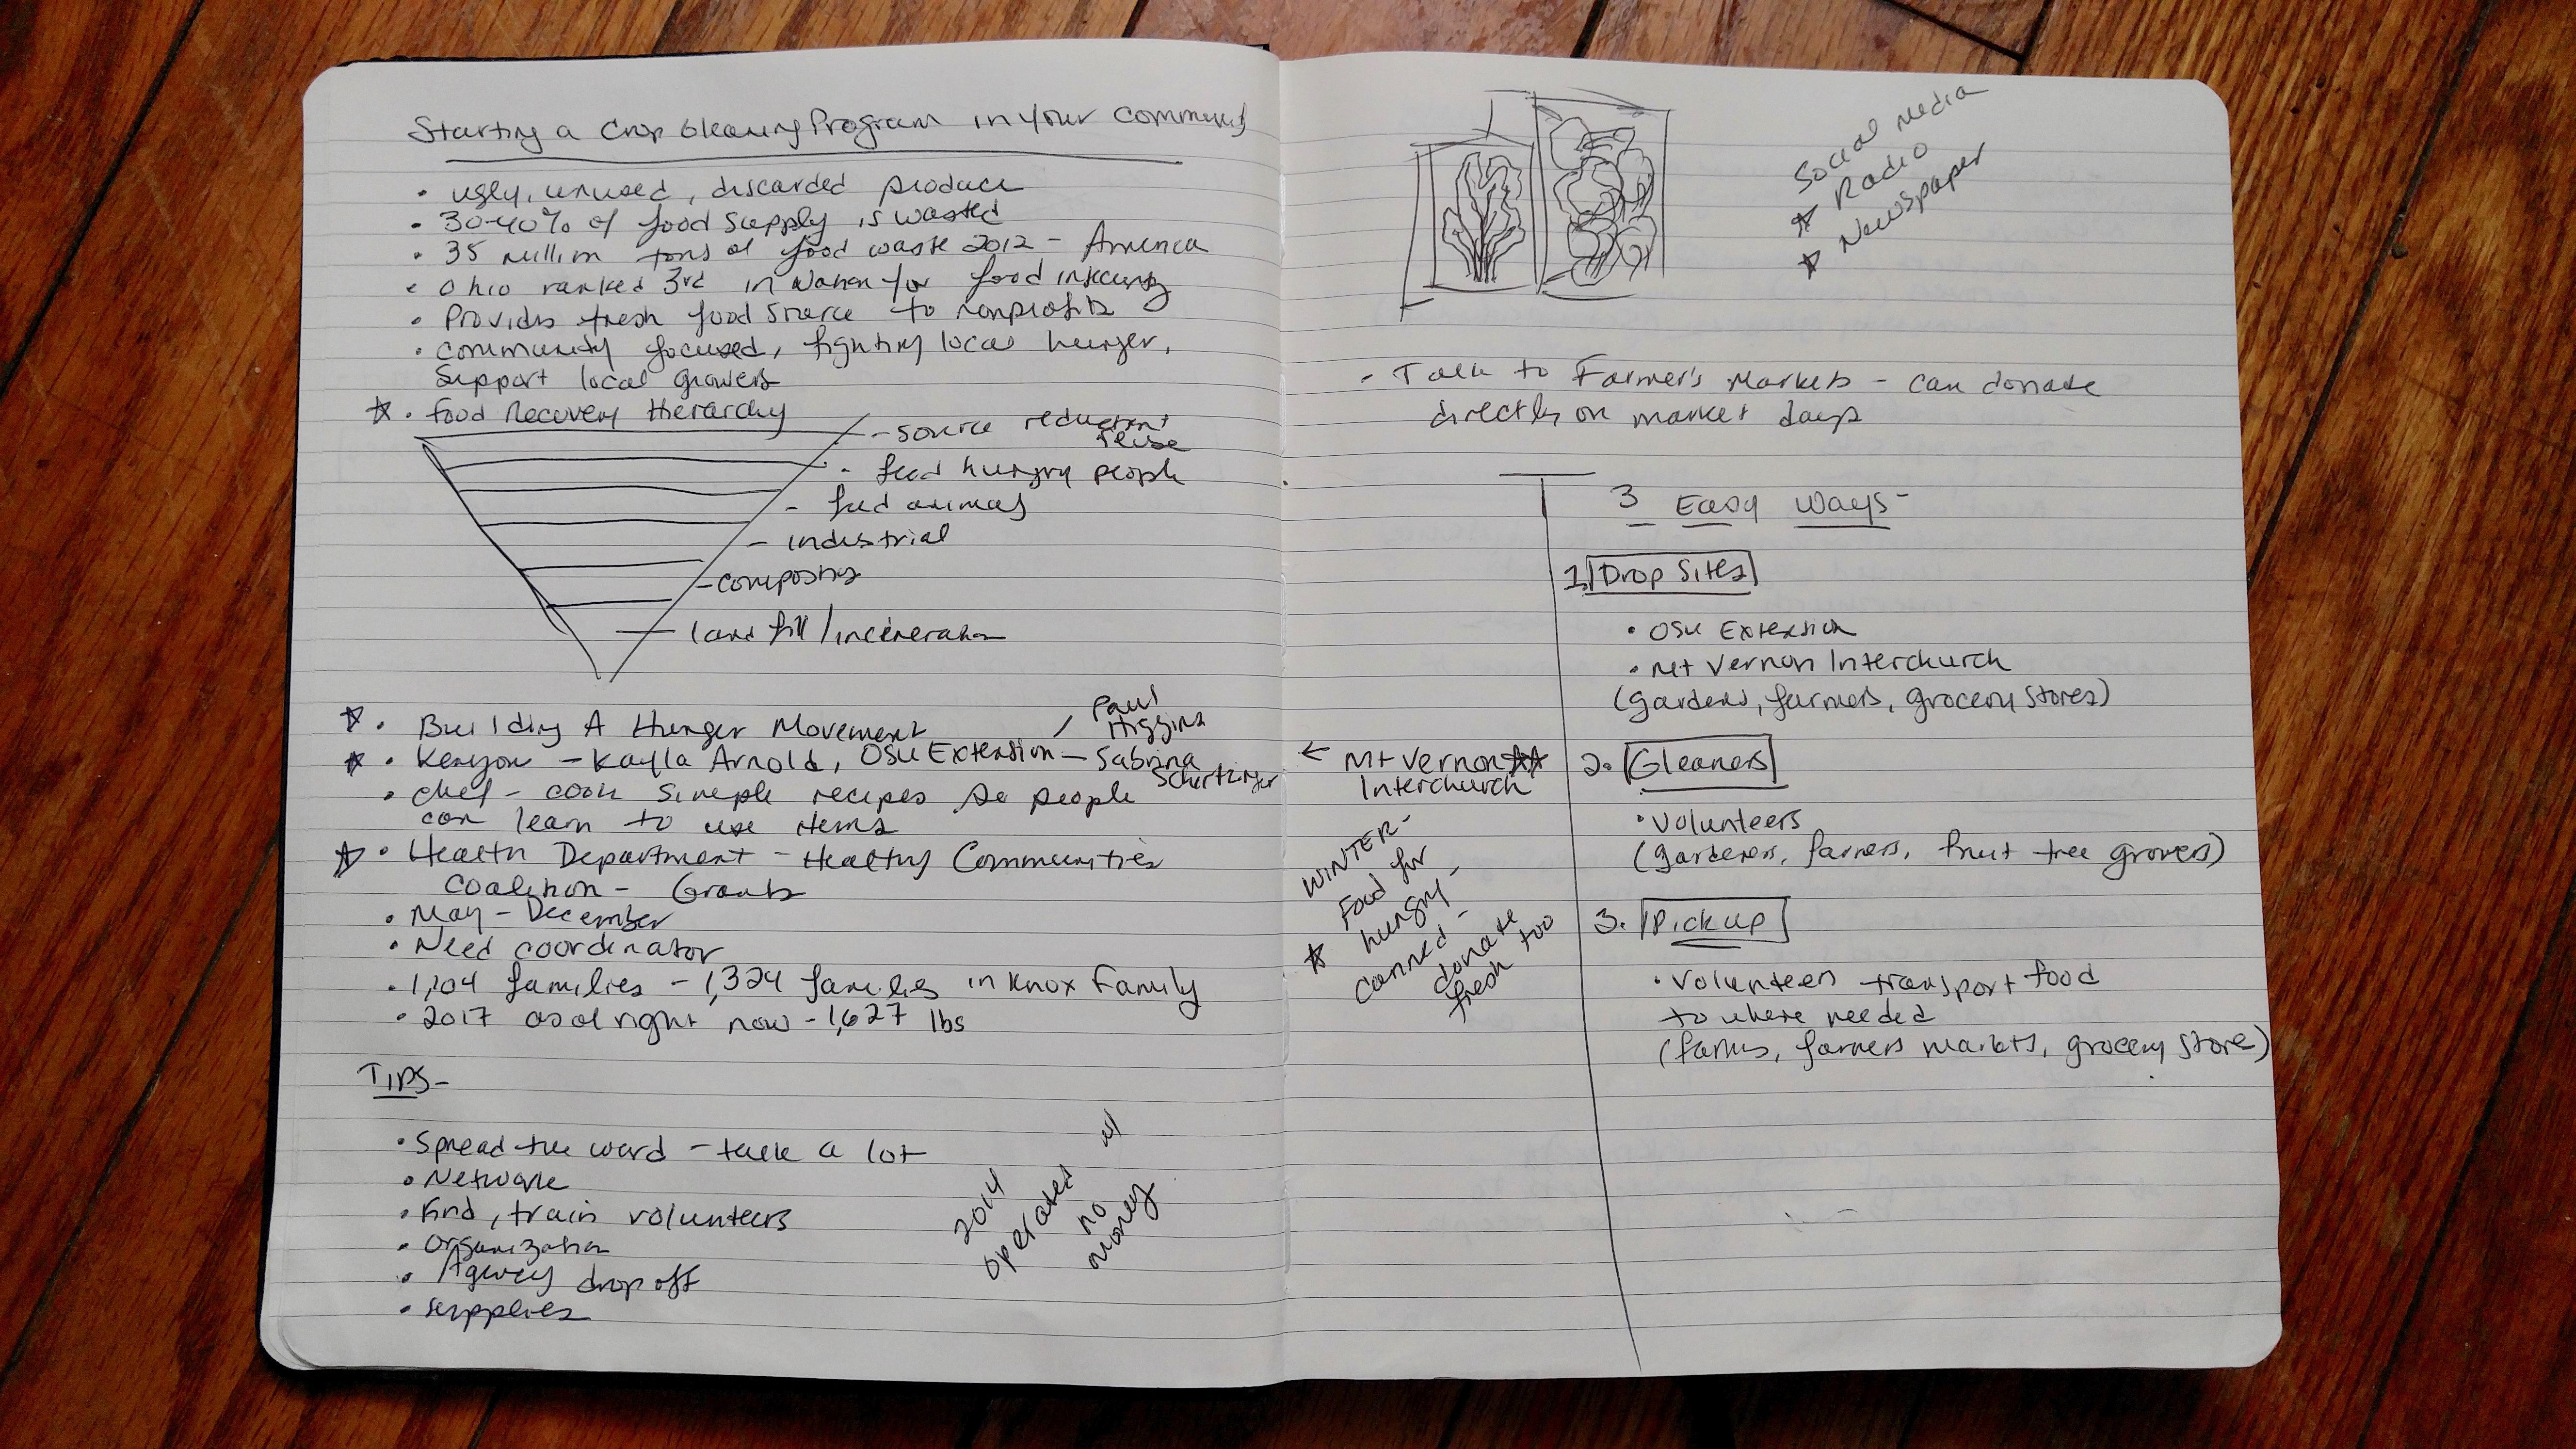 Starting a Crop Gleaning Program in your Community
• ugly, unused, discarded produce
• 30-40% of food supply is wasted
• 35 million tons of food waste 2012 - America
• Ohio ranked 3rd in Nation for food insecurity
• Provides fresh food source to nonprofits
• community focused, fighting local hunger,
support local growers
☆ • Food Recovery Hierarchy
- source reduction
reuse
- feed hungry people
- feed animals
- industrial
- composting
- land fill / incineration
☆ • Building A Hunger Movement
☆ • Kenyon - Kayla Arnold, OSU Extension - Sabrina
Schertzinger
/ Paul
Higgins
• chef - cook simple recipes so people
can learn to use items
☆ • Health Department - Healthy Communities
Coalition - Grants
• May - December
• Need coordinator
• 1,104 families - 1,324 families in Knox Family
• 2017 as of right now - 1,627 lbs
TIPS -
• Spread the word - talk a lot
• Network
• Find, train volunteers
• organization
• Agency drop off
• supplies
2014
operated w/
no
money
Social media
☆ Radio
☆ Newspaper
- Talk to Farmer's Markets - can donate
directly on market days
3 Easy Ways -
1. Drop Sites
• OSU Extension
• Mt Vernon Interchurch
(gardens, farmers, grocery stores)
← Mt Vernon ☆☆
Interchurch
WINTER -
Food for
☆ hungry -
canned -
donate
fresh too
2. Gleaners
• Volunteers
(gardeners, farmers, fruit tree growers)
3. Pick up
• Volunteers transport food
to where needed
(farms, farmers markets, grocery store)